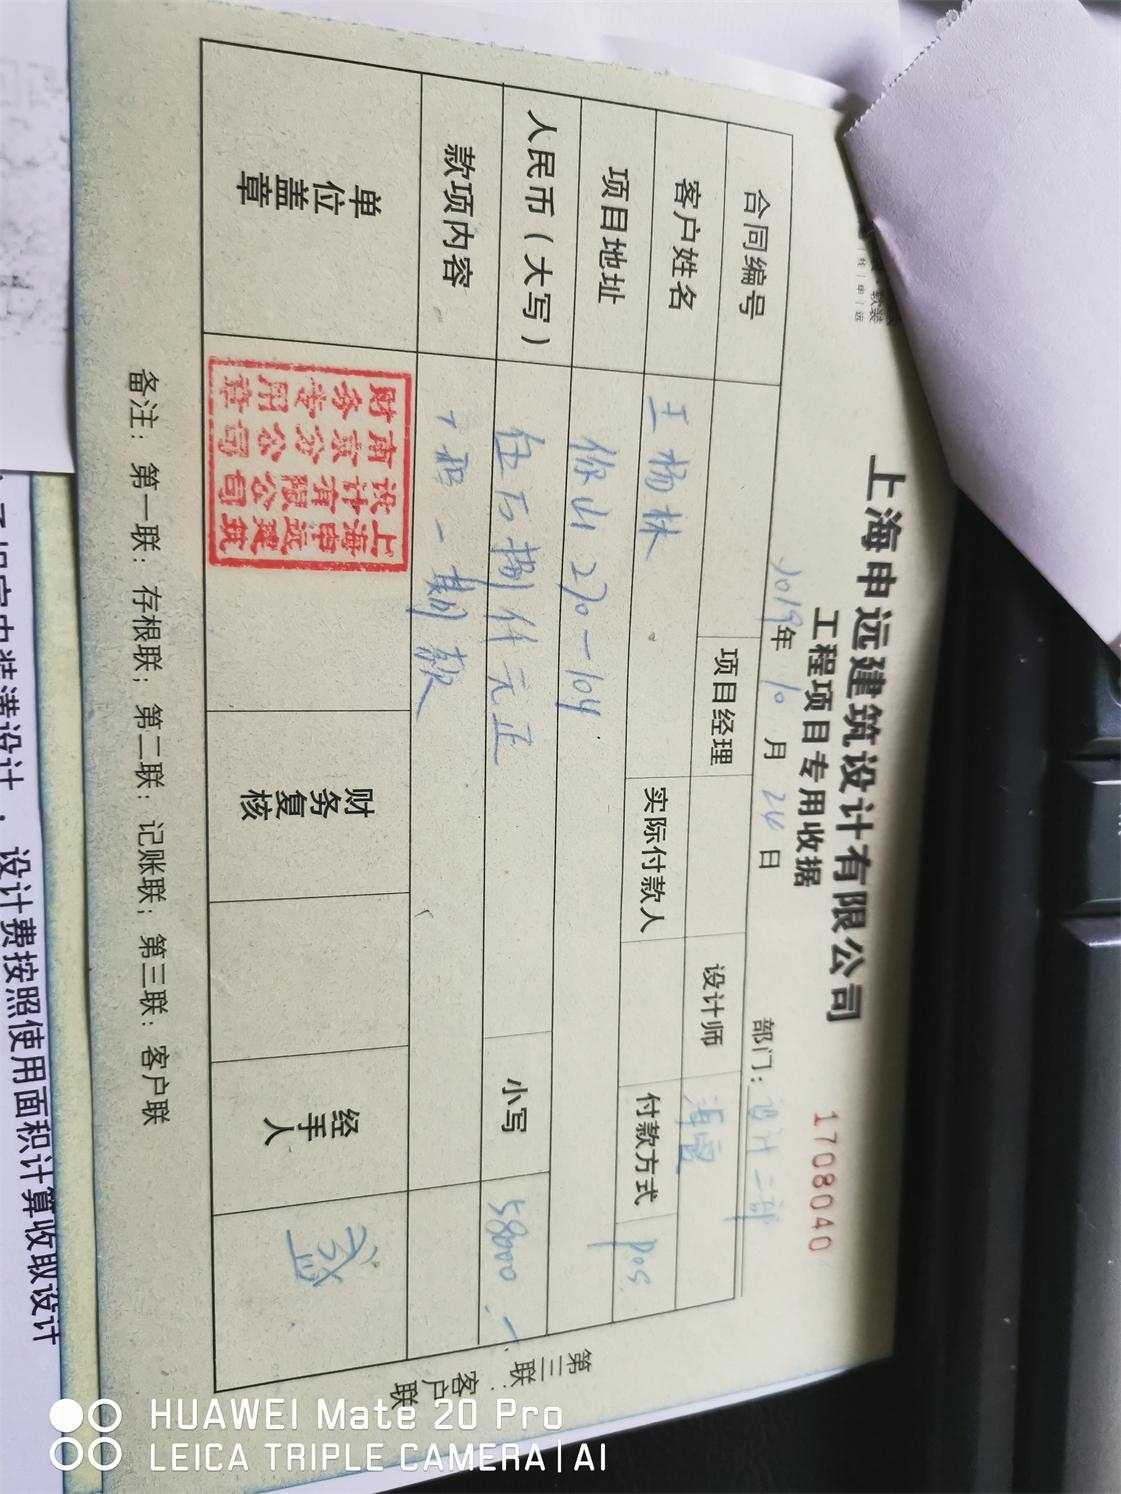 上海申远建筑设计有限公司
工程项目专用收据
1708040
2019年10月24日
部门：设计二部
合同编号
项目经理
设计师
客户姓名 王杨林
实际付款人
付款方式 pos
项目地址 270-104
人民币（大写） 伍万捌仟元正
小写 58000.-
款项内容 工程一期款
单位盖章
上海申远建筑
设计有限公司
南京分公司
财务专用章
财务复核
经手人
备注：第一联：存根联；第二联：记账联；第三联：客户联
第三联：客户联
设计费按照使用面积计算收取设计
HUAWEI Mate 20 Pro
LEICA TRIPLE CAMERA | AI